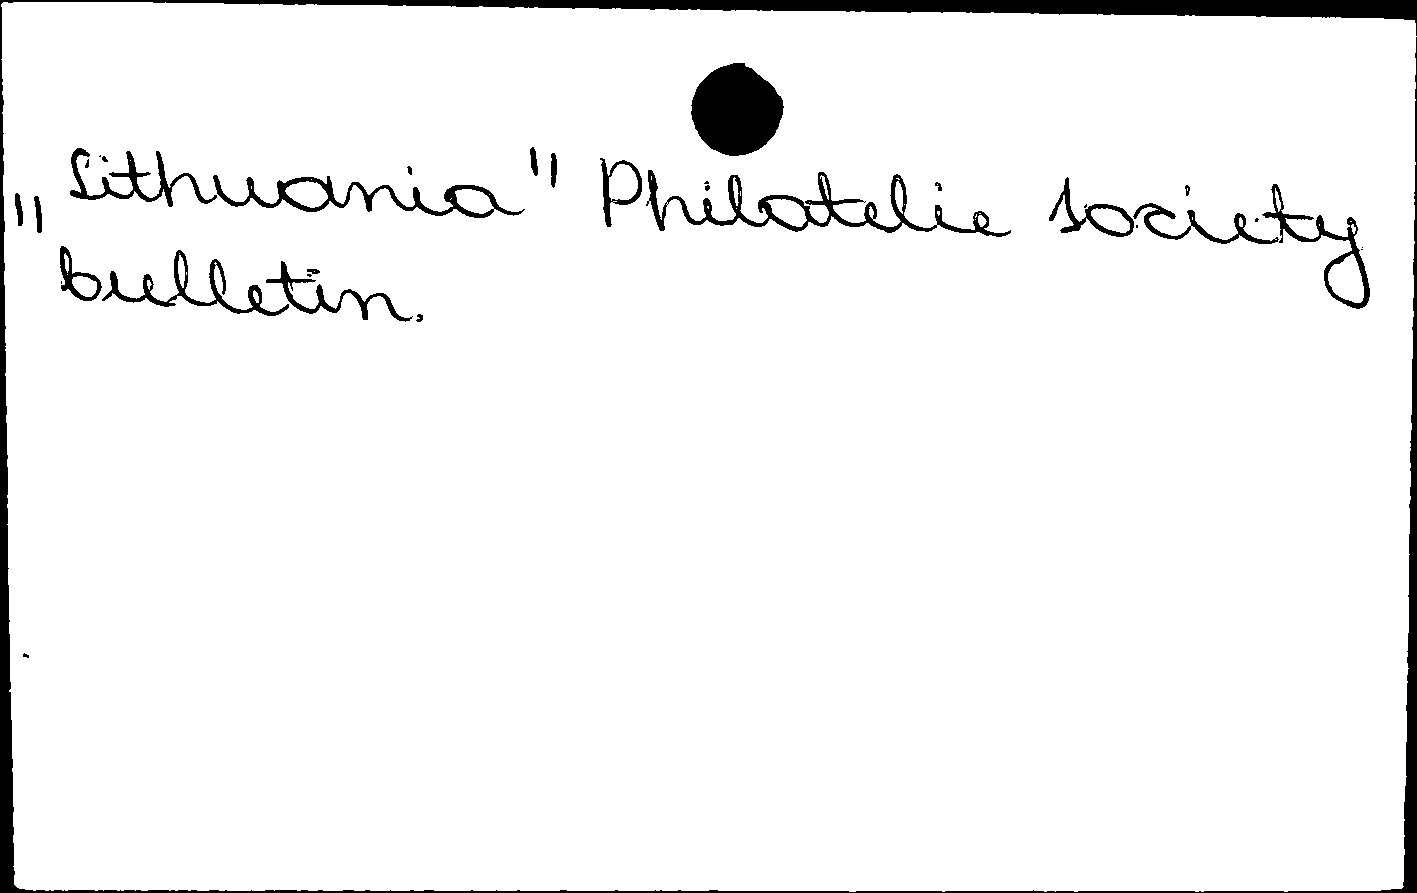 „Lithuania" Philatelic society
bulletin.